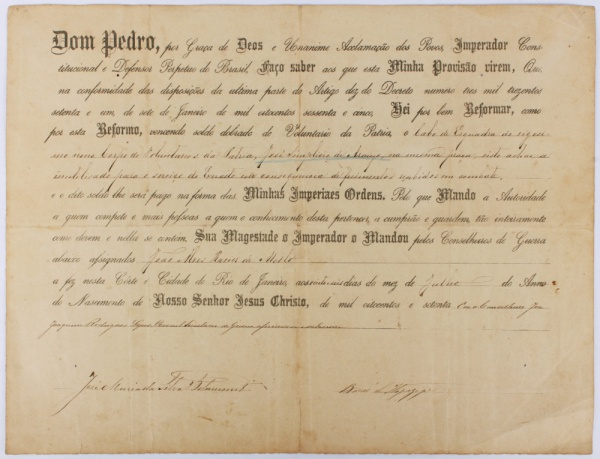 Dom Pedro, por Graça de Deos e Unanime Acclamação dos Povos, Imperador Cons-
titucional e Defensor Perpetuo do Brasil, Faço saber aos que esta Minha Provisão virem, Que
na conformidade das disposições da ultima parte do Artigo dez do Decreto numero tres mil trezentos
setenta e um, de sete de Janeiro de mil oitocentos sessenta e cinco, Hei por bem Reformar, como
por esta Reformo, vencendo soldo dobrado de Voluntario da Patria, o Cabo de Esquadra do
Corpo de Voluntarios da Patria, José na mesma praça, visto achar-se
inutilisado para o serviço do Exercito em consequencia de ferimentos recebidos em combate
e o dito soldo lhe será pago na forma das Minhas Imperiaes Ordens. Pelo que Mando a Autoridade
a quem compete e mais pessoas a quem o conhecimento desta pertencer, a cumprão e guardem tão inteiramente
como devem e nella se contém. Sua Magestade o Imperador o Mandou pelos Conselheiros de Guerra
abaixo assignados. João
a fez nesta Côrte e Cidade do Rio de Janeiro, aos dias do mez de Julho do Anno
do Nascimento de Nosso Senhor Jesus Christo, de mil oitocentos e setenta E o Conselheiro
Rodrigues
José Maria da Bitancourt